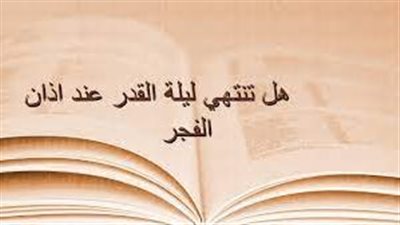 هل تنتهي ليلة القدر عند اذان
الفجر